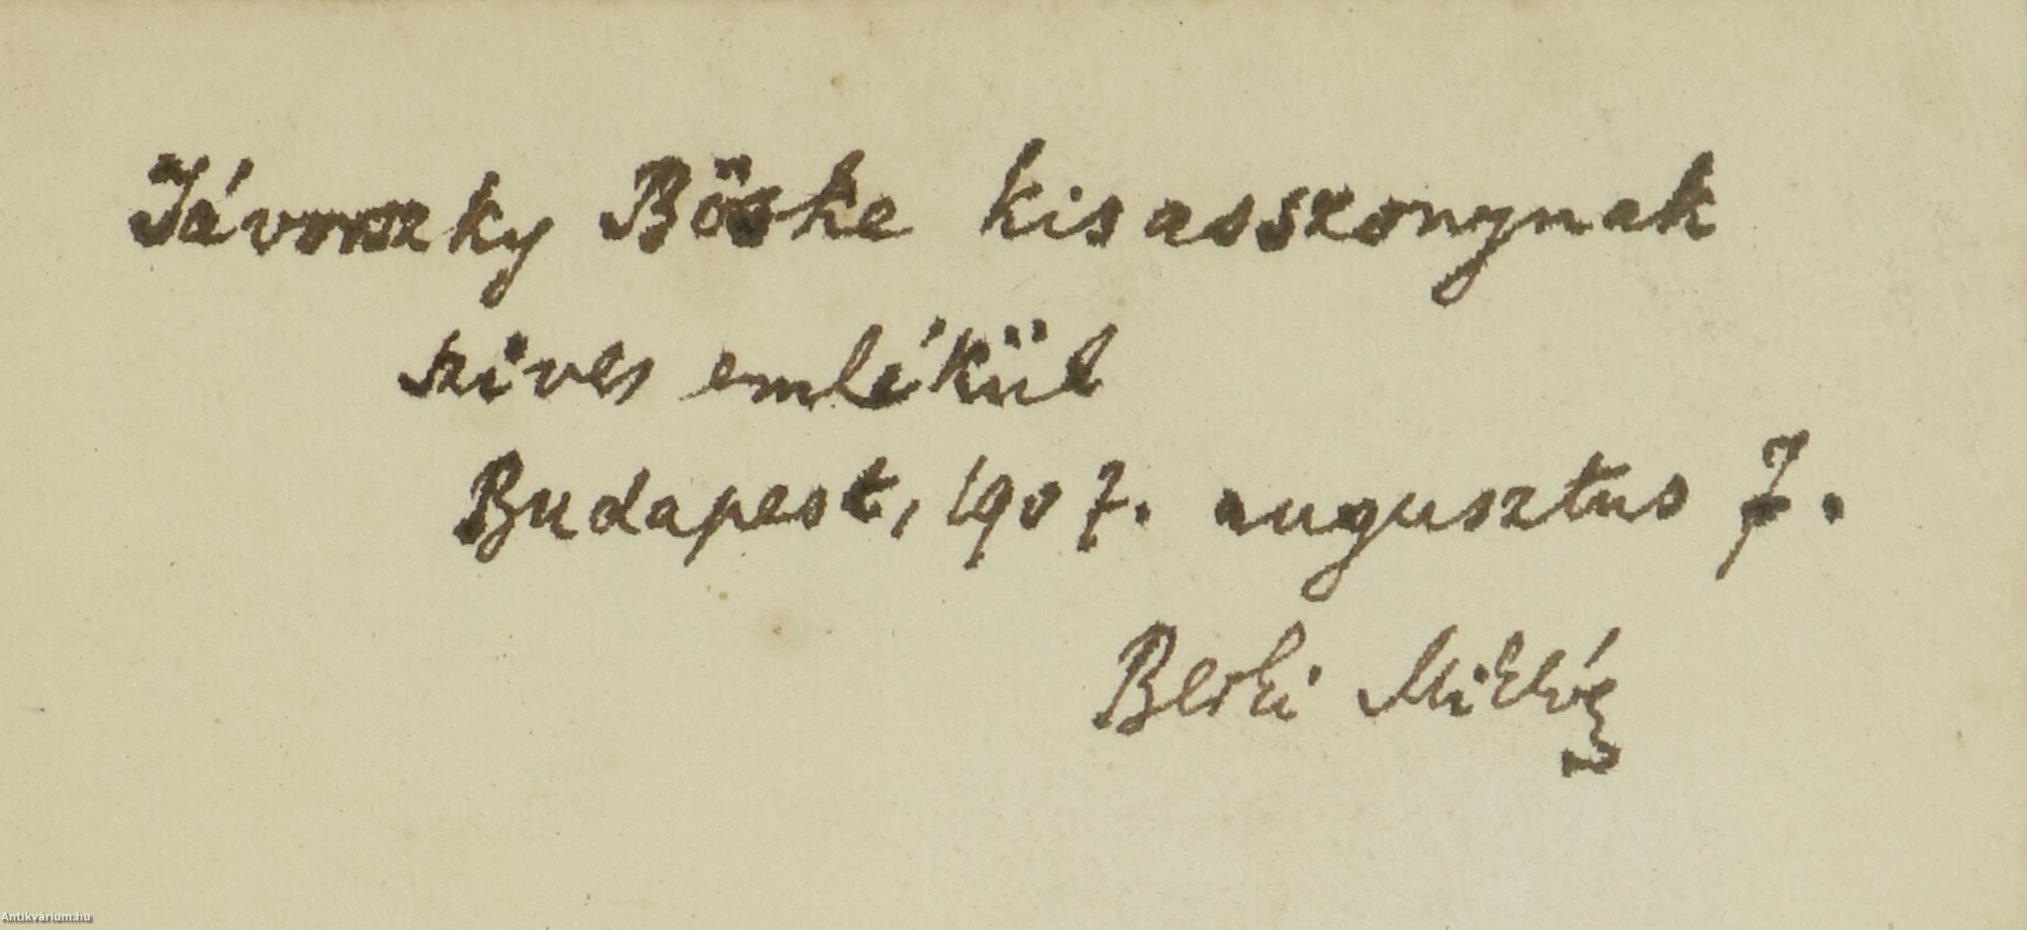 Jávorszky Böske kisasszonynak
szives emlékül
Budapest, 1907. augusztus 7.
Berki Miklós
Antikvárium.hu